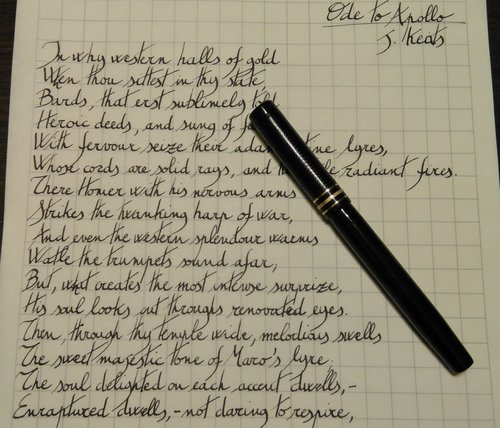 Ode to Apollo
J. Keats
In why western halls of gold
When thou sittest in thy state
Bards, that erst sublimely
Heroic deeds, and sung of
With fervour seize their lyres,
Whose cords are solid rays, and radiant fires.
There Homer with his nervous arms
Strikes the twanking harp of war,
And even the western splendour warms
the trumpets sound afar;
But, what creates the most intense surprize,
His soul looks out throughs renovated eyes.
Then, through thy temple wide, melodious swells
The sweet majestic tone of Maro's lyre
The soul delighted on each accent dwells,-
Enraptured dwells,- not daring to respire,